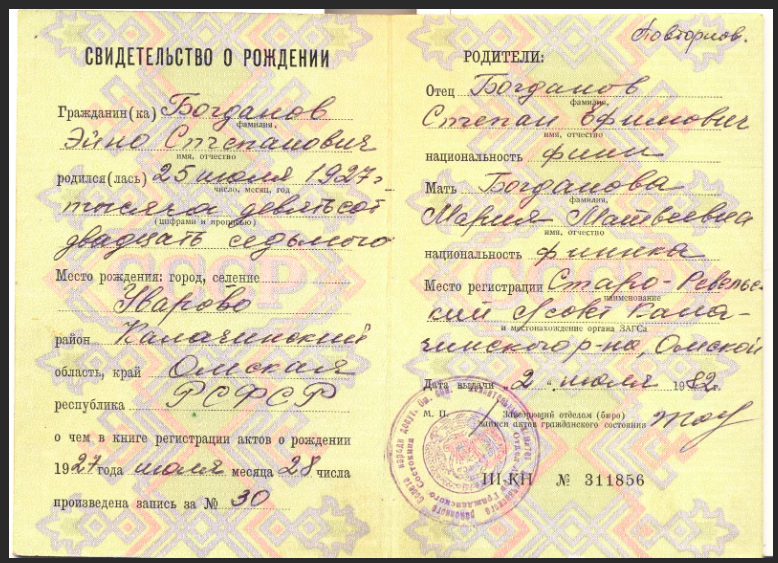 СВИДЕТЕЛЬСТВО О РОЖДЕНИИ
Гражданин(ка) Богданов
фамилия,
Эйно Степанович
имя, отчество
родился(лась) 25 июля 1927г
число, месяц, год
тысяча девятьсот
(цифрами и прописью)
двадцать седьмого
Место рождения: город, селение
Уварово
район Калачинский
область, край Омская
республика РСФСР
о чем в книге регистрации актов о рождении
1927 года июля месяца 28 числа
произведена запись за № 30
Повторнов.
РОДИТЕЛИ:
Отец Богданов
фамилия,
Степан Ефимович
имя, отчество
национальность финн
Мать Богданова
фамилия,
Мария Матвеевна
имя, отчество
национальность финка
Место регистрации Старо-Ревельс-
наименование
кий с/совет Кала-
и местонахождение органа ЗАГСа
чинского р-на, Омской
Дата выдачи „2“ июля 1982г.
М. П. Заведующий отделом (бюро)
записи актов гражданского состояния
III-КН № 311856